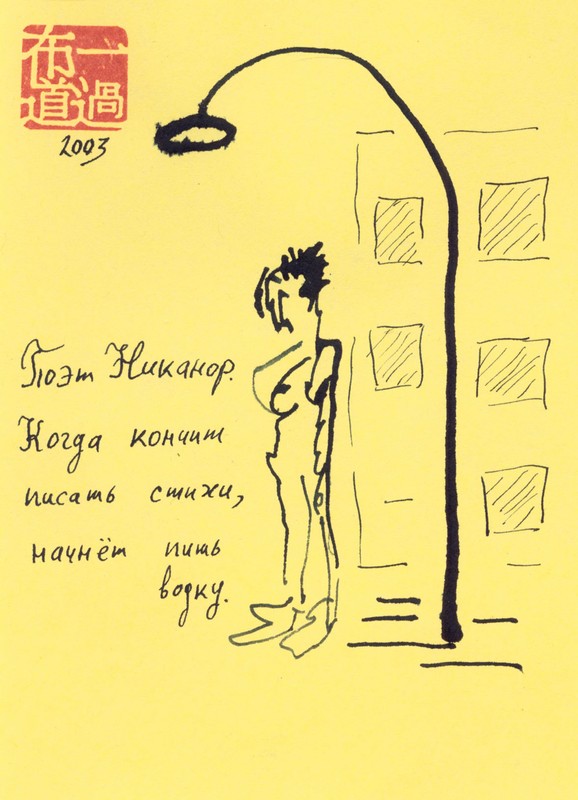 一過
布道
2003
Поэт Никанор.
Когда кончит
писать стихи,
начнёт пить
водку.